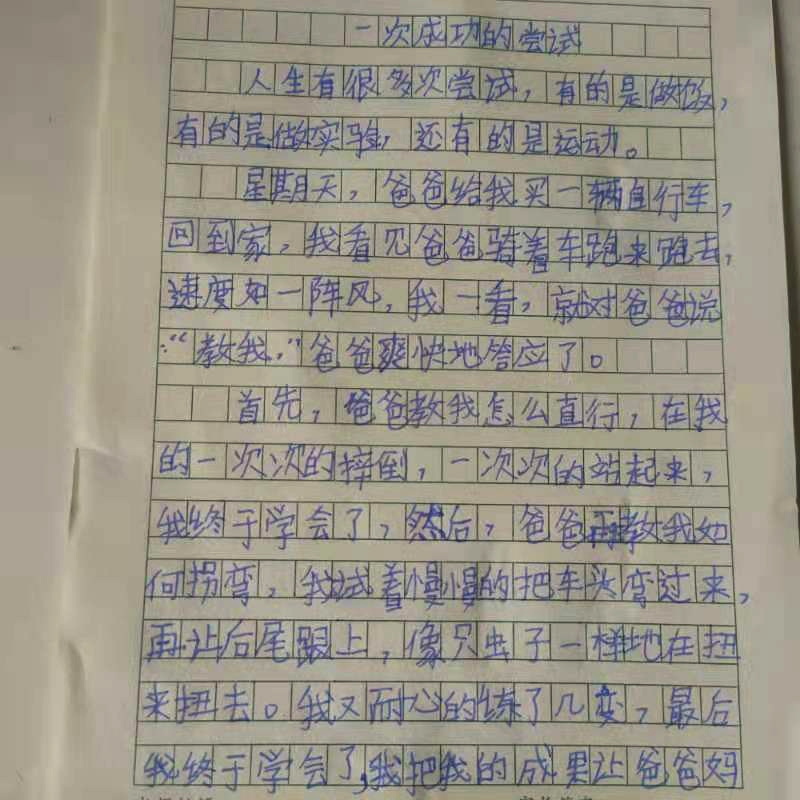 一次成功的尝试
人生有很多次尝试，有的是做饭，
有的是做实验，还有的是运动。
星期天，爸爸给我买一辆自行车，
回到家，我看见爸爸骑着车跑来跑去，
速度如一阵风，我一看，就对爸爸说
：“教我。”爸爸爽快地答应了。
首先，爸爸教我怎么直行，在我
的一次次的摔倒，一次次的站起来，
我终于学会了，然后，爸爸再教我如
何拐弯，我试着慢慢的把车头弯过来，
再让后尾跟上，像只虫子一样地在扭
来扭去。我又耐心的练了几变，最后
我终于学会了，我把我的成果让爸爸妈